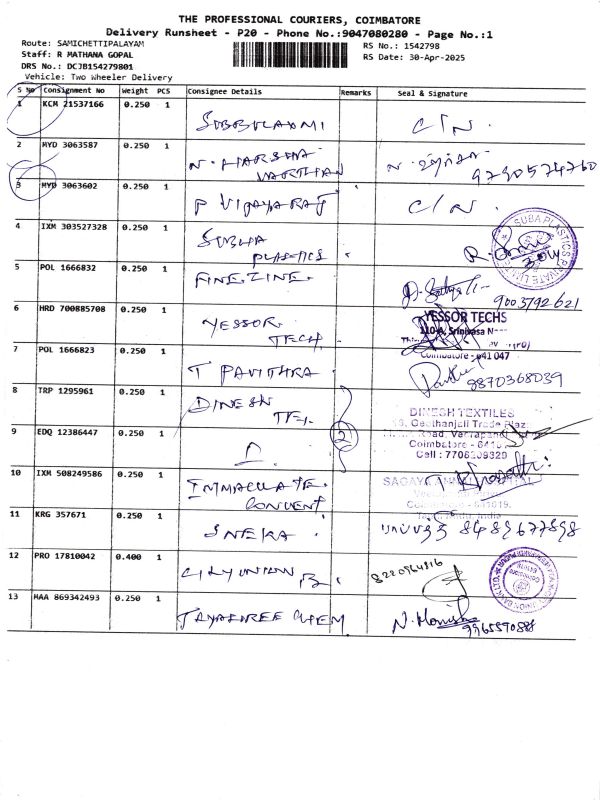 THE PROFESSIONAL COURIERS, COIMBATORE
Delivery Runsheet - P20 - Phone No.:9047080280 - Page No.:1
Route: SAMICHETTIPALAYAM
RS No.: 1542798
Staff: R MATHANA GOPAL
RS Date: 30-Apr-2025
DRS No.: DCJB154279801
Vehicle: Two Wheeler Delivery
S No Consignment No Weight PCS Consignee Details Remarks Seal & Signature
1 KCM 21537166 0.250 1 SUBBULAXMI C/N.
2 MYD 3063587 0.250 1 N. HARSHA VARTHAN N. 9790574760
3 MYD 3063602 0.250 1 P VIJAYARAJ C/N.
4 IXM 303527328 0.250 1 SUBHA PLASTICS SUBA PLASTICS PRIVATE LIMITED
5 POL 1666832 0.250 1 FINEZINE. 9003792621
6 HRD 700885708 0.250 1 YESSOR TECH YESSOR TECHS
110-A, Srinivasa N
Coimbatore - 641 047
7 POL 1666823 0.250 1 T PAVITHRA. 8870368039
8 TRP 1295961 0.250 1 DINESH TEX. DINESH TEXTILES
Geethanjali Trade Plaz
Road,
Coimbatore - 641
Cell : 7708209320
9 EDQ 12386447 0.250 1 2
10 IXM 508249586 0.250 1 IMMACULATE CONVENT SAGAYA
11 KRG 357671 0.250 1 SNEKA. 8489677898
12 PRO 17810042 0.400 1 8220964816
13 MAA 869342493 0.250 1 JAYASHREE CHEM N. Monisha